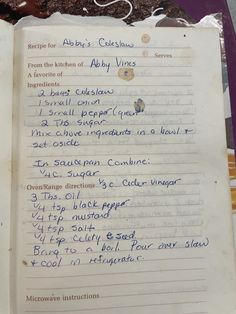 Recipe for Abby's Coleslaw
Serves
From the kitchen of Abby Vines
A favorite of
Ingredients
2 bags Coleslaw
1 small onion
1 small pepper (green
2 Tbs Sugar
Mix above ingredients in a bowl &
set aside
In Saucepan Combine:
1/4 c. Sugar
Oven/Range directions 1/3 c. Cider Vinegar
3 Tbs. Oil
1/4 tsp. black pepper
1/4 tsp mustard
1/4 tsp Salt
1/4 tsp Celery Seed
Bring to a boil. Pour over slaw
& cool in refrigerator.
Microwave instructions